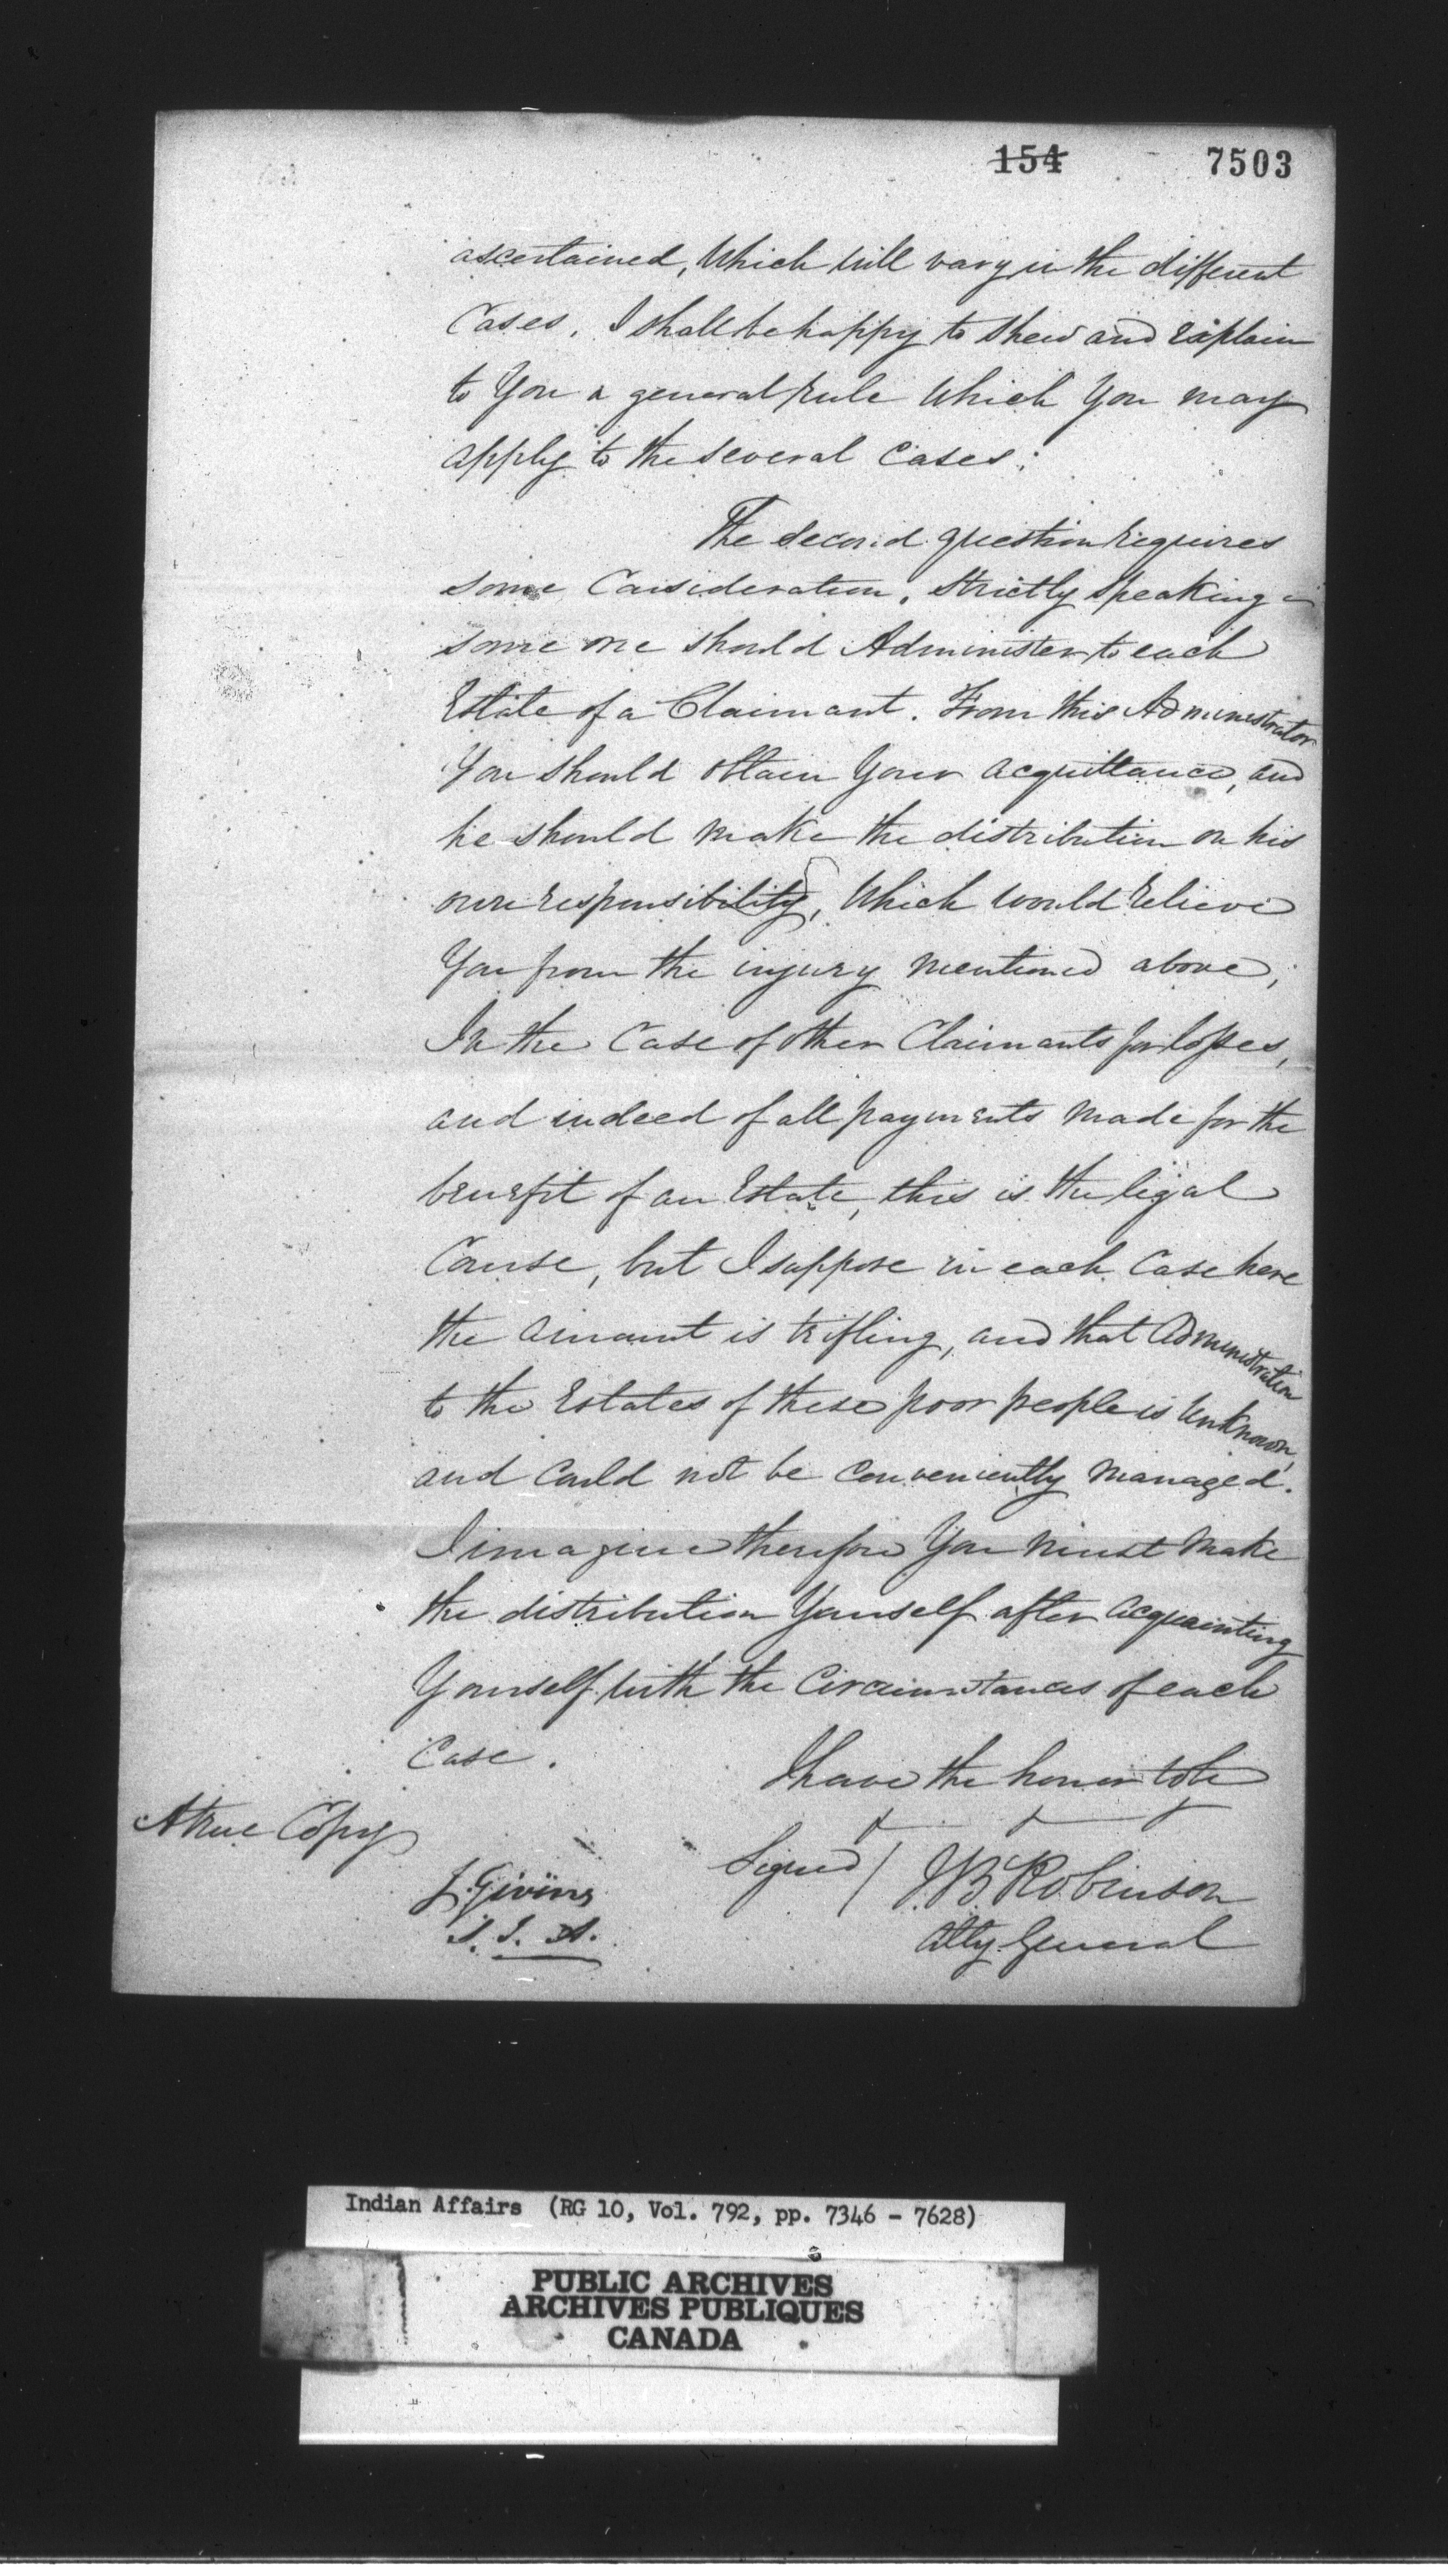 154 7503
ascertained, Which will vary in the different
Cases. I shall be happy to shew and explain
to You a general rule Which You may
apply to the several Cases;
The second question requires
some Consideration, strictly speaking
some one should Administer to each
Estate of a Claimant. From this Administrator
You should obtain Your acquittance, and
he should make the distribution on his
own responsibility, Which would relieve
You from the injury mentioned above;
In the Case of other Claimants for losses,
and indeed of all payments made for the
benefit of an Estate, this is the legal
Course, but I suppose in each Case here
the amount is trifling, and that Administration
to the Estates of these poor people is Unknown,
and Could not be Conveniently Managed.
I imagine therefore You must Make
the distribution Yourself after acquainting
Yourself with the Circumstances of each
Case.
I have the honor to be
A true Copy
Signed / J B Robinson
J. Givins
S. I. A.
Atty General
Indian Affairs (RG 10, Vol. 792, pp. 7346 - 7628)
PUBLIC ARCHIVES
ARCHIVES PUBLIQUES
CANADA